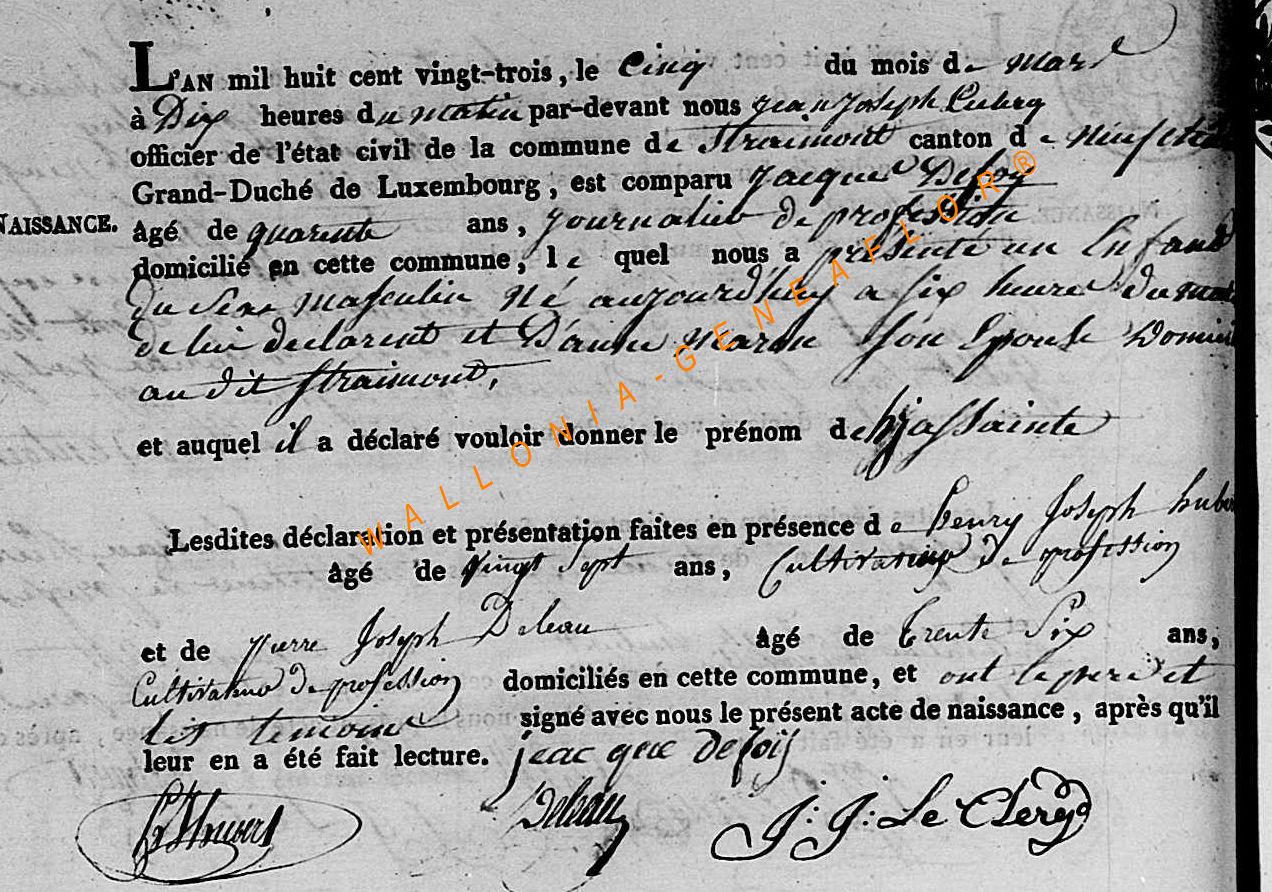 L'AN mil huit cent vingt-trois, le Cinq du mois de Mars
à Dix heures du matin par-devant nous jean joseph
officier de l'état civil de la commune de Straimont canton de neufch
Grand-Duché de Luxembourg, est comparu jacque Defoy
NAISSANCE.
Agé de quarente ans, journalier de profession
domicilié en cette commune, le quel nous a présenté un Enfand
du Sexe masculin Né aujourd'huy a six heure du mat
de lui declarent et D'anne marie son Epouse Domici
au dit straimont,
et auquel il a déclaré vouloir donner le prénom de hjassainte
Lesdites déclaration et présentation faites en présence de henry Joseph huber
Agé de vingt Sept ans, Cultivateur de profession
et de pierre Joseph Deleau Agé de trente Six ans,
Cultivateur de profession domiciliés en cette commune, et ont le pere et
les temoins signé avec nous le présent acte de naissance, après qu'il
leur en a été fait lecture. jeacque defoij
Deleau J: J: Le Clerq
WALLONIA-GENEAFLOR®